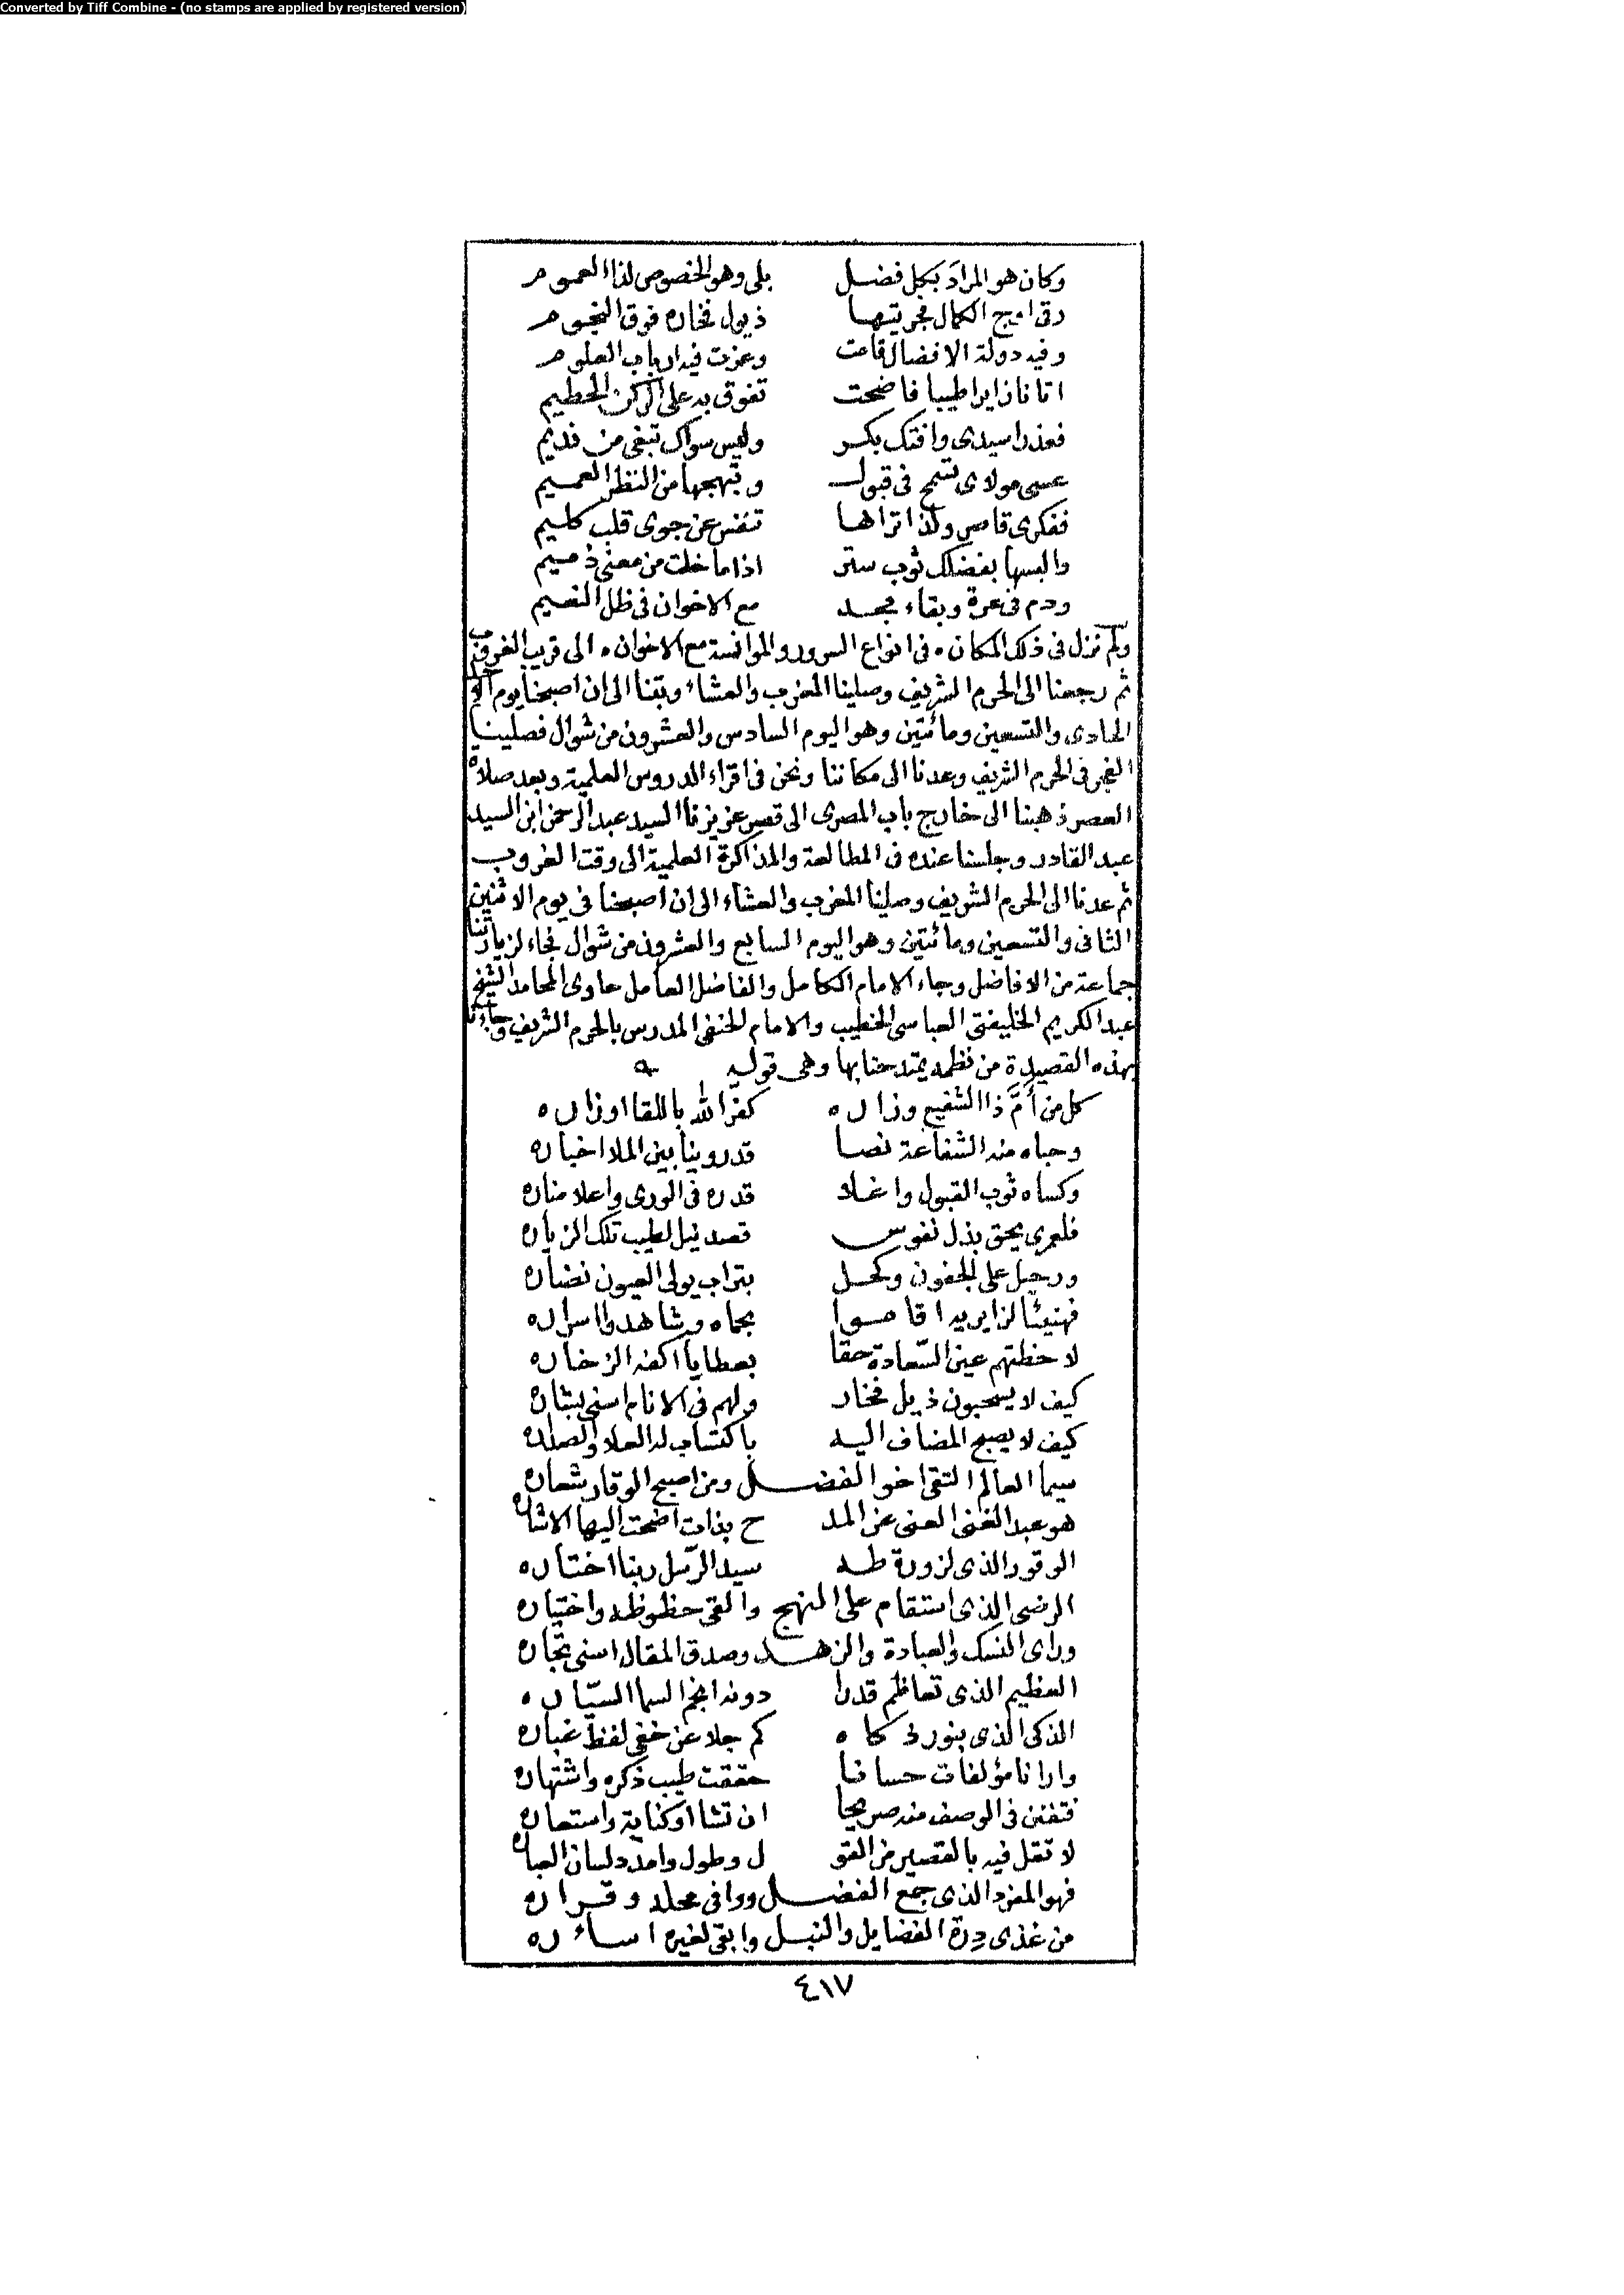 Converted by Tiff Combine - (no stamps are applied by registered version)
وكان هو المراد بكل فضل بلى وهو الخصوص لذا العموم
رقى اوج الكمال فجر تيها ذيول فخاره فوق النجوم
وفيه دولة الافضال قامت وعزت فيه ارباب العلوم
اتانا زايرا طيبا فاضحت تفوق به على الركن الحطيم
فعذرا سيدى وافتك بكر وليس سواك تبغى من قديم
عسى مولاى تسمح فى قبول وتبهجها من النظر العميم
ففكرى قاصر ولذا تراها تنفس عن جوى قلب كليم
والبسها بفضلك ثوب ستر اذا ما خلت من معنى ذميم
ودم فى عزة وبقاء مجد مع الاخوان فى ظل النعيم
ولم نزل فى ذلك المكان ه فى انواع السرور والموانسة مع الاخوان ه الى قريب الغروب
ثم رجعنا الى الحرم الشريف وصلينا المغرب والعشاء وبتنا الى ان اصبحنا يوم الاحد
الحادى والتسعين ومائتين وهو اليوم السادس والعشرون من شوال فصلينا
الفجر فى الحرم الشريف وعدنا الى مكاننا ونحن فى اقراء الدروس العلمية وبعد صلاة
العصر ذهبنا الى خارج باب المصرى الى قصر عزيزنا السيد عبد الرحمن ابن السيد
عبد القادر وجلسنا عنده فى المطالعة والمذاكرة العلمية الى وقت الغروب
ثم عدنا الى الحرم الشريف وصلينا المغرب والعشاء الى ان اصبحنا فى يوم الاثنين
الثانى والتسعين ومائتين وهو اليوم السابع والعشرون من شوال فجاء لزيارتنا
جماعة من الافاضل وجاء الامام الكامل والفاضل العامل حاوى المحامد الشيخ
عبد الكريم الخليفتى العباسى الخطيب والامام الحنفى المدرس بالحرم الشريف وجاءنا
بهذه القصيدة من نظمه يمتدحنا بها وهى قوله
كل من أمَّ ذا الشفيع وزاره كفر الله باللقا اوزاره
وحباه منه الشفاعة نصا قد روينا بين الملا اخباره
وكساه ثوب القبول واغلا قدره فى الورى واعلا مناره
فلعمرى يحق بذل نفوس قصد نيل لطيب تلك الزياره
ورحيل على الجفون وكحل بتراب يولى العيون نضاره
فهنيئا لزايريه اقاموا بحماه وشاهدوا اسراره
لاحظتهم عين السّعادة حقا بعطايا اكفه الزخاره
كيف لا يسحبون ذيل فخار ولهم فى الانام اسنى بشاره
كيف لا يصبح المضاف اليه باكتساب له العلا والصداره
سيما العالم التقى اخو الفضل ومن اصبح الوقار شعاره
هو عبد الغنى الغنى عن المد ح بذات اضحت اليها الاشاره
الوقور الذى لزورة طه سيد الرّسل ربنا اختاره
الرضى الذى استقام على المنهج والقى حظوظه واختياره
وراى النسك والعبادة والزهد وصدق المقال اسنى تجاره
العظيم الذى تعاظم قدرا دونه انجم السما السيّاره
الذكى الذى بنور ذكاه كم جلا عن خفى لفظ غباره
وارانا مؤلفات حسانا حققت طيب ذكره واشتهاره
فتفنن فى الوصف منه صريحا ان تشا او كناية واستعاره
لا تقل فيه بالقصير من القو ل وطول وامدد لسان العباره
فهو المفرد الذى جمع الفضل ووافى محله وقراره
من غذى دِرة الفضايل والنبل وابقى لغيره اساءره
٤١٧